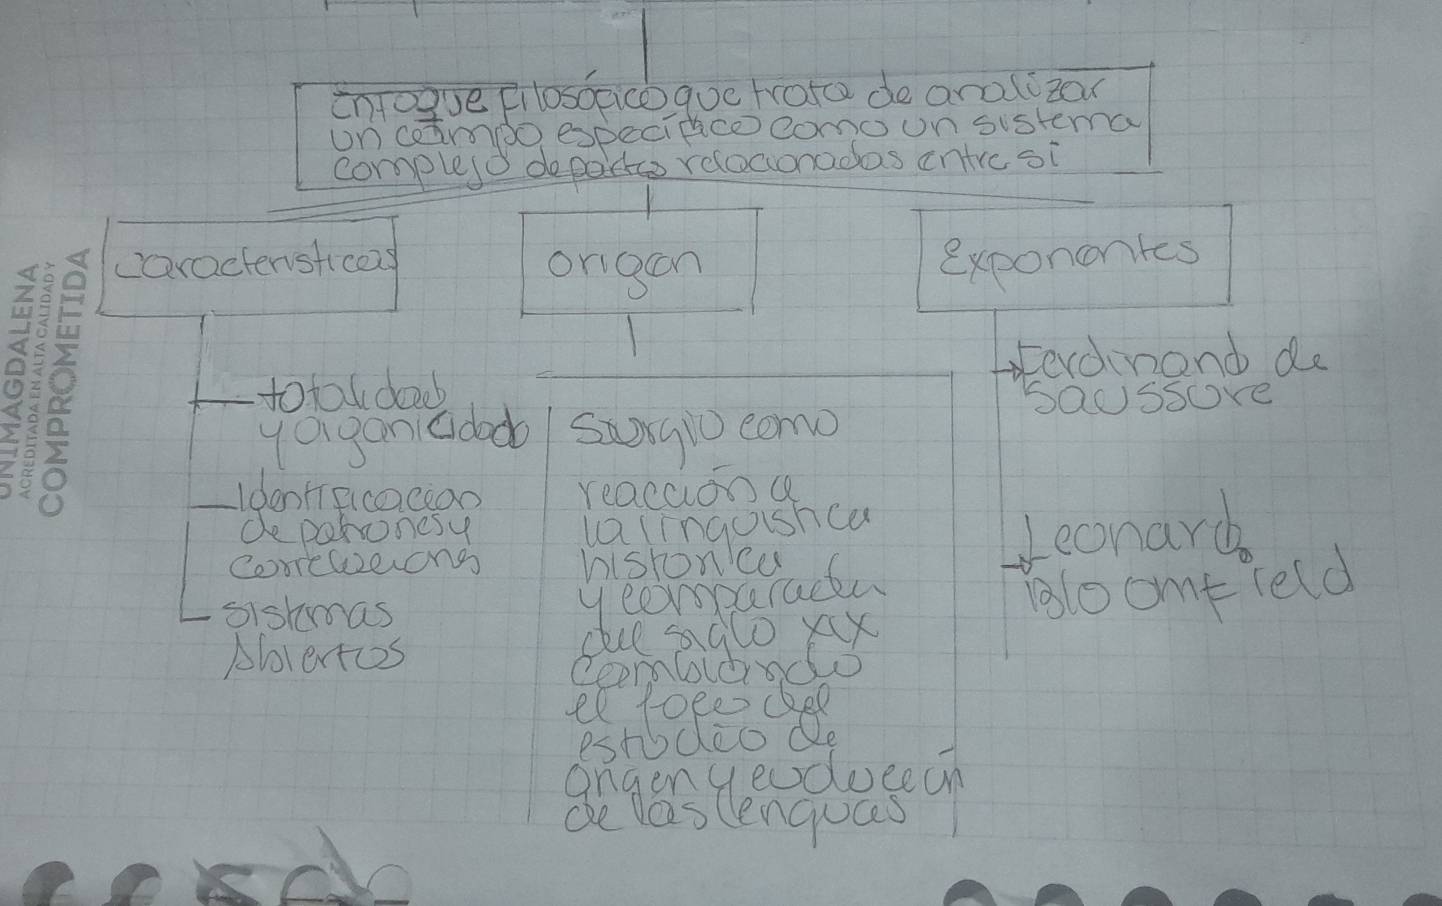 Enfoque filosófico que trata de analizar
un campo especifico como un sistema
complejo de partes relacionadas entre si
Caracteristicas
origen
Exponentes
totalidad
y organicidad
Identificacion
de patrones y
correlaciones
sistemas
Abiertos
Surgio como
reacción a
la linguistica
historica
y comparada
del siglo XIX
cambiando
el foco del
estudio de
origen y evolucion
de las lenguas
Ferdinand de
Saussure
Leonard
Bloomfield
UNIMAGDALENA
ACREDITADA EN ALTA CALIDAD Y
COMPROMETIDA